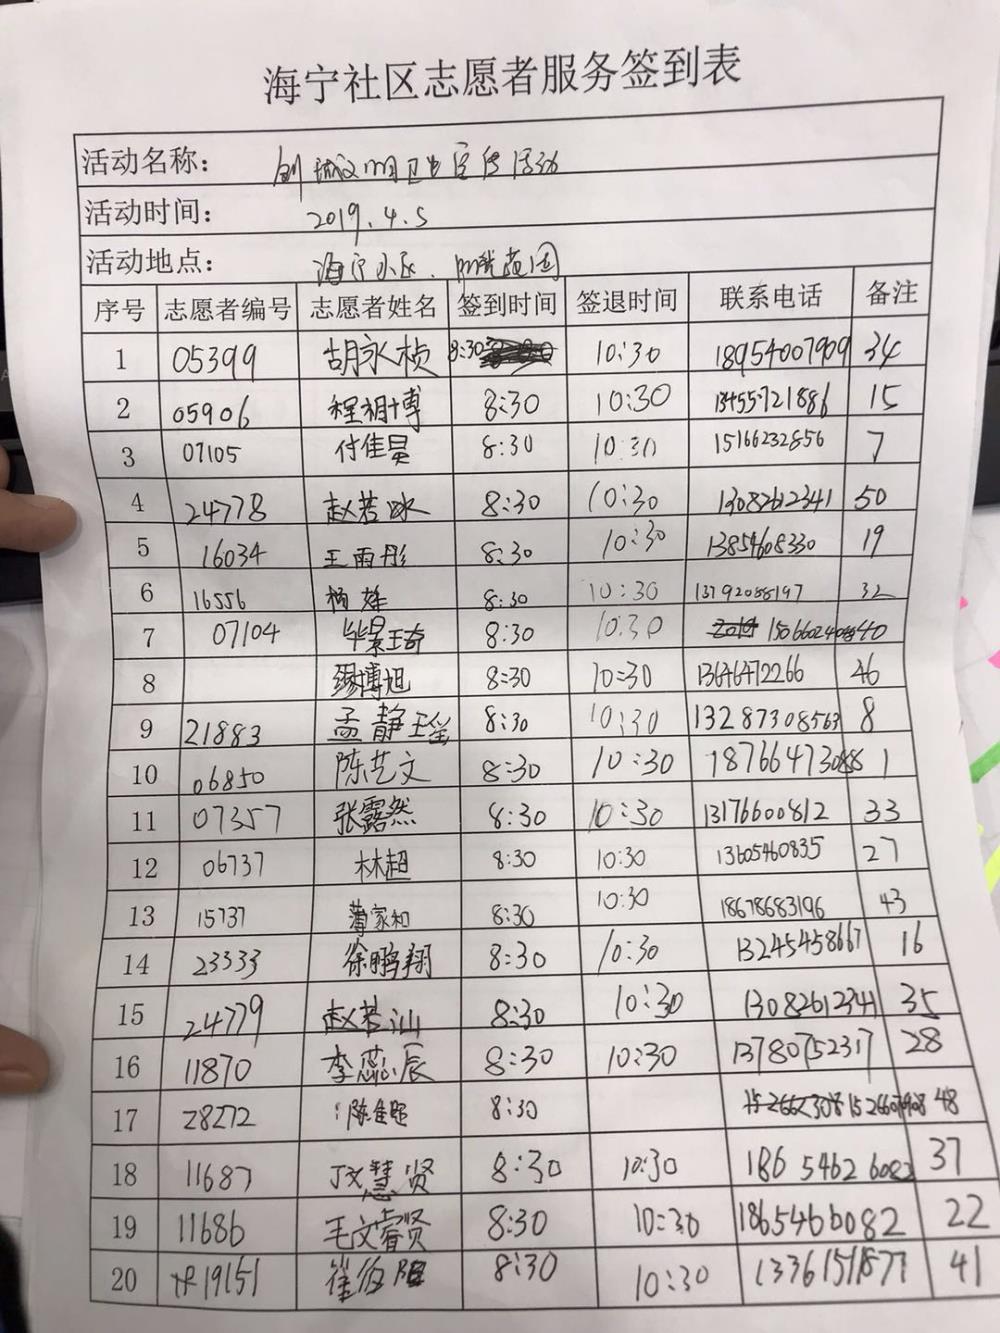 海宁社区志愿者服务签到表
活动名称: 创城文明卫生宣传活动
活动时间: 2019.4.5
活动地点: 海宁小区.
序号 志愿者编号 志愿者姓名 签到时间 签退时间 联系电话 备注
1 05399 胡永桢 8:30 10:30 18954007909 34
2 05906 程相博 8:30 10:30 13455721886 15
3 07105 付佳昊 8:30 10:30 15166232856 7
4 24778 赵若冰 8:30 10:30 13082612341 50
5 16034 王雨彤 8:30 10:30 13854608330 19
6 16556 杨雄 8:30 10:30 13792088197 32
7 07104 毕景琦 8:30 10:30 40
8 博旭 8:30 10:30 13646472266 46
9 21883 孟静瑶 8:30 10:30 13287308563 8
10 06850 陈艺文 8:30 10:30 18766473088 1
11 07357 张露然 8:30 10:30 13176600812 33
12 06737 林超 8:30 10:30 13605460835 27
13 15737 薄家和 8:30 10:30 18678683196 43
14 23333 徐鹏翔 8:30 10:30 13245458667 16
15 24779 赵若汕 8:30 10:30 13082612341 35
16 11870 李蕊辰 8:30 10:30 13780752317 28
17 28272 陈佳 8:30 48
18 11687 慧贤 8:30 10:30 186 5462 6082 37
19 11686 毛文睿贤 8:30 10:30 22
20 19151 崔 8:30 10:30 13361571877 41